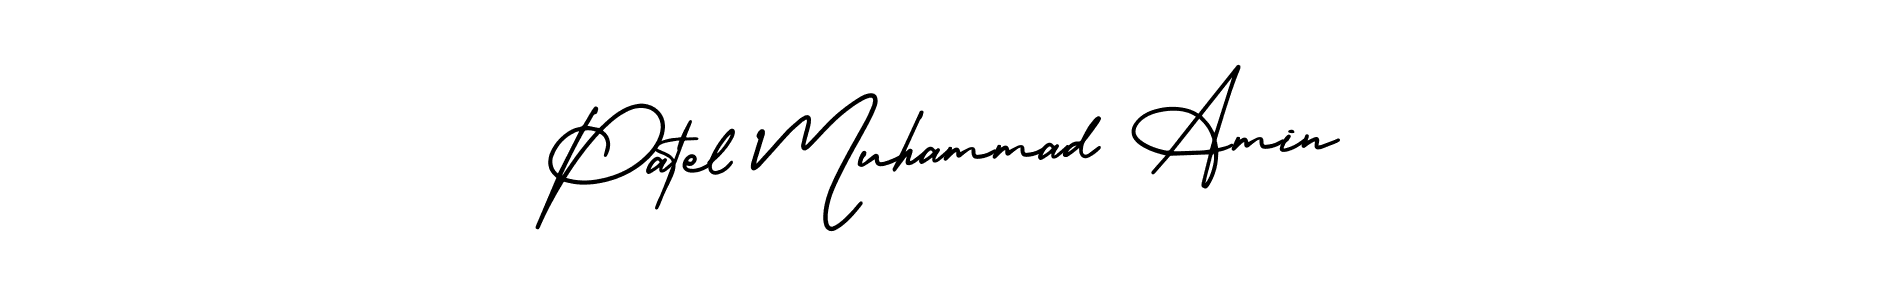 Patel Muhammad Amin